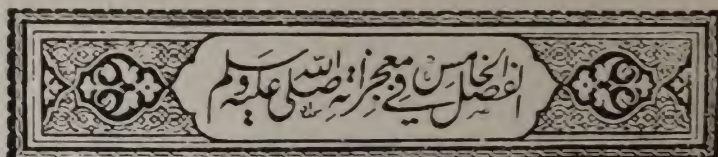 الفصل الخامس في معجزاته صلى الله عليه وسلم